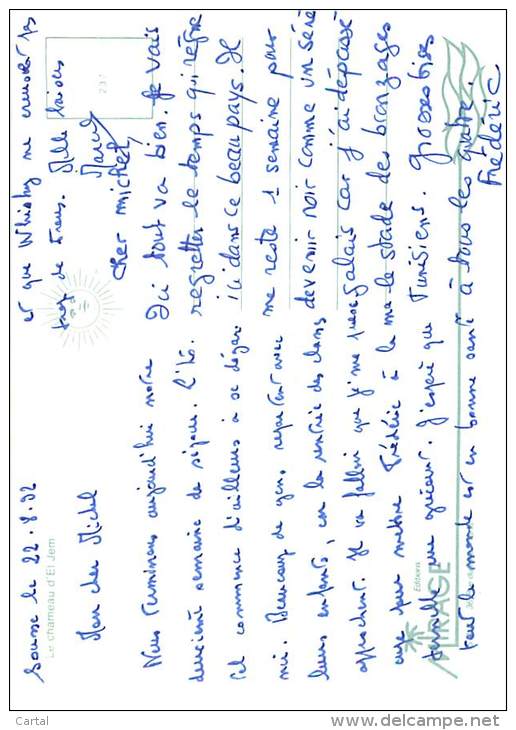 Sousse le 22.8.92
Le chameau d'El Jem
Mon cher Michel
Nous terminons aujourd'hui notre
deuxième semaine de séjour. L'hô-
tel commence d'ailleurs à se dégar-
nir. Beaucoup de gens repartent avec
leurs enfants, car la rentrée des classes
approchent. Il va falloir que je me
pour mettre Frédéric à la
famille me. J'espère que
tout le monde est en bonne santé à tous les quatre.
et que Whisky ne
trop de. Mille bisous
Cher Michel,
Ici tout va bien. Je vais
regretter le temps qui règne
ici dans ce beau pays. Il
me reste 1 semaine pour
devenir noir comme un séné
galais car j'ai dépassé
le stade des bronzages
Tunisiens. Grosses bises
Frédéric
Editions
MIRAGE
Cartal
www.delcampe.net